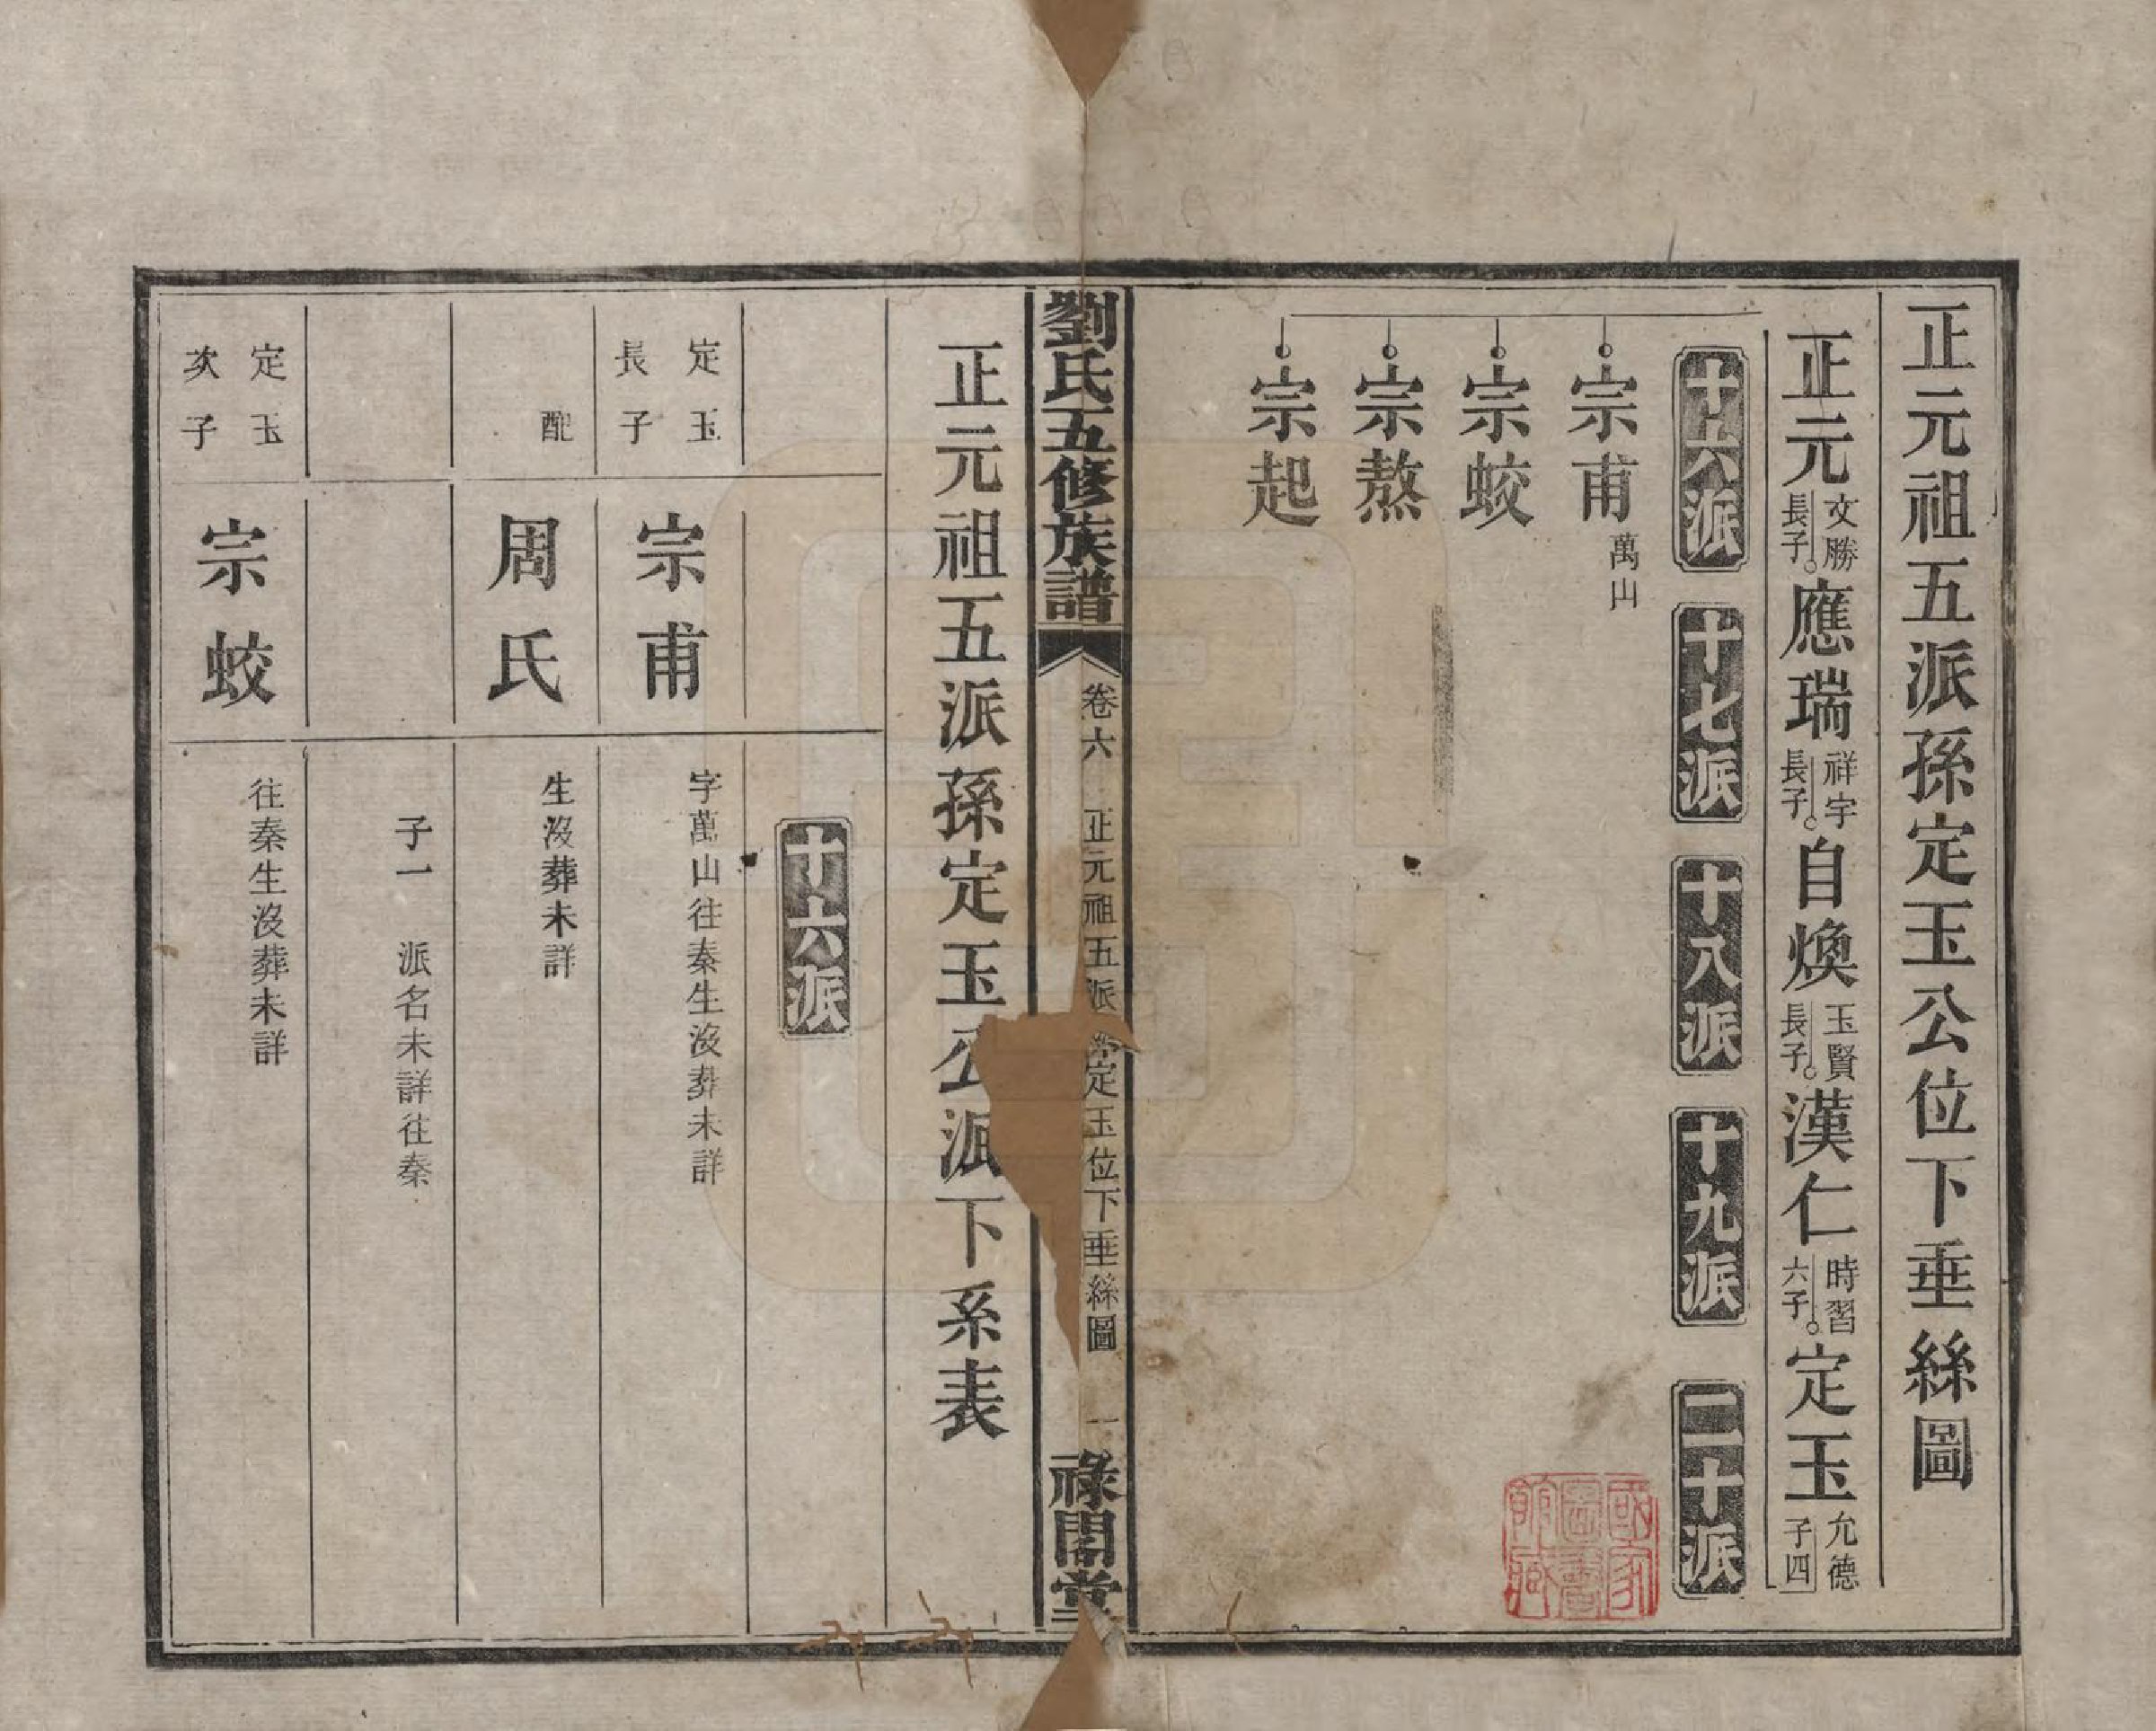 正元祖五派孫定玉公位下垂絲圖
正元文勝長子應瑞祥宇長子自煥玉賢長子漢仁時習六子定玉允德子四
十六派 十七派 十八派 十九派 二十派
宗甫萬山
宗蛟
宗熬
宗起
國家圖書館藏
劉氏五修族譜 卷六 正元祖五派孫定玉位下垂絲圖 一 祿閣堂
正元祖五派孫定玉公派下系表
十六派
定玉長子 宗甫 字萬山往秦生沒葬未詳
配 周氏 生沒葬未詳
子一 派名未詳往秦
定玉次子 宗蛟 往秦生沒葬未詳